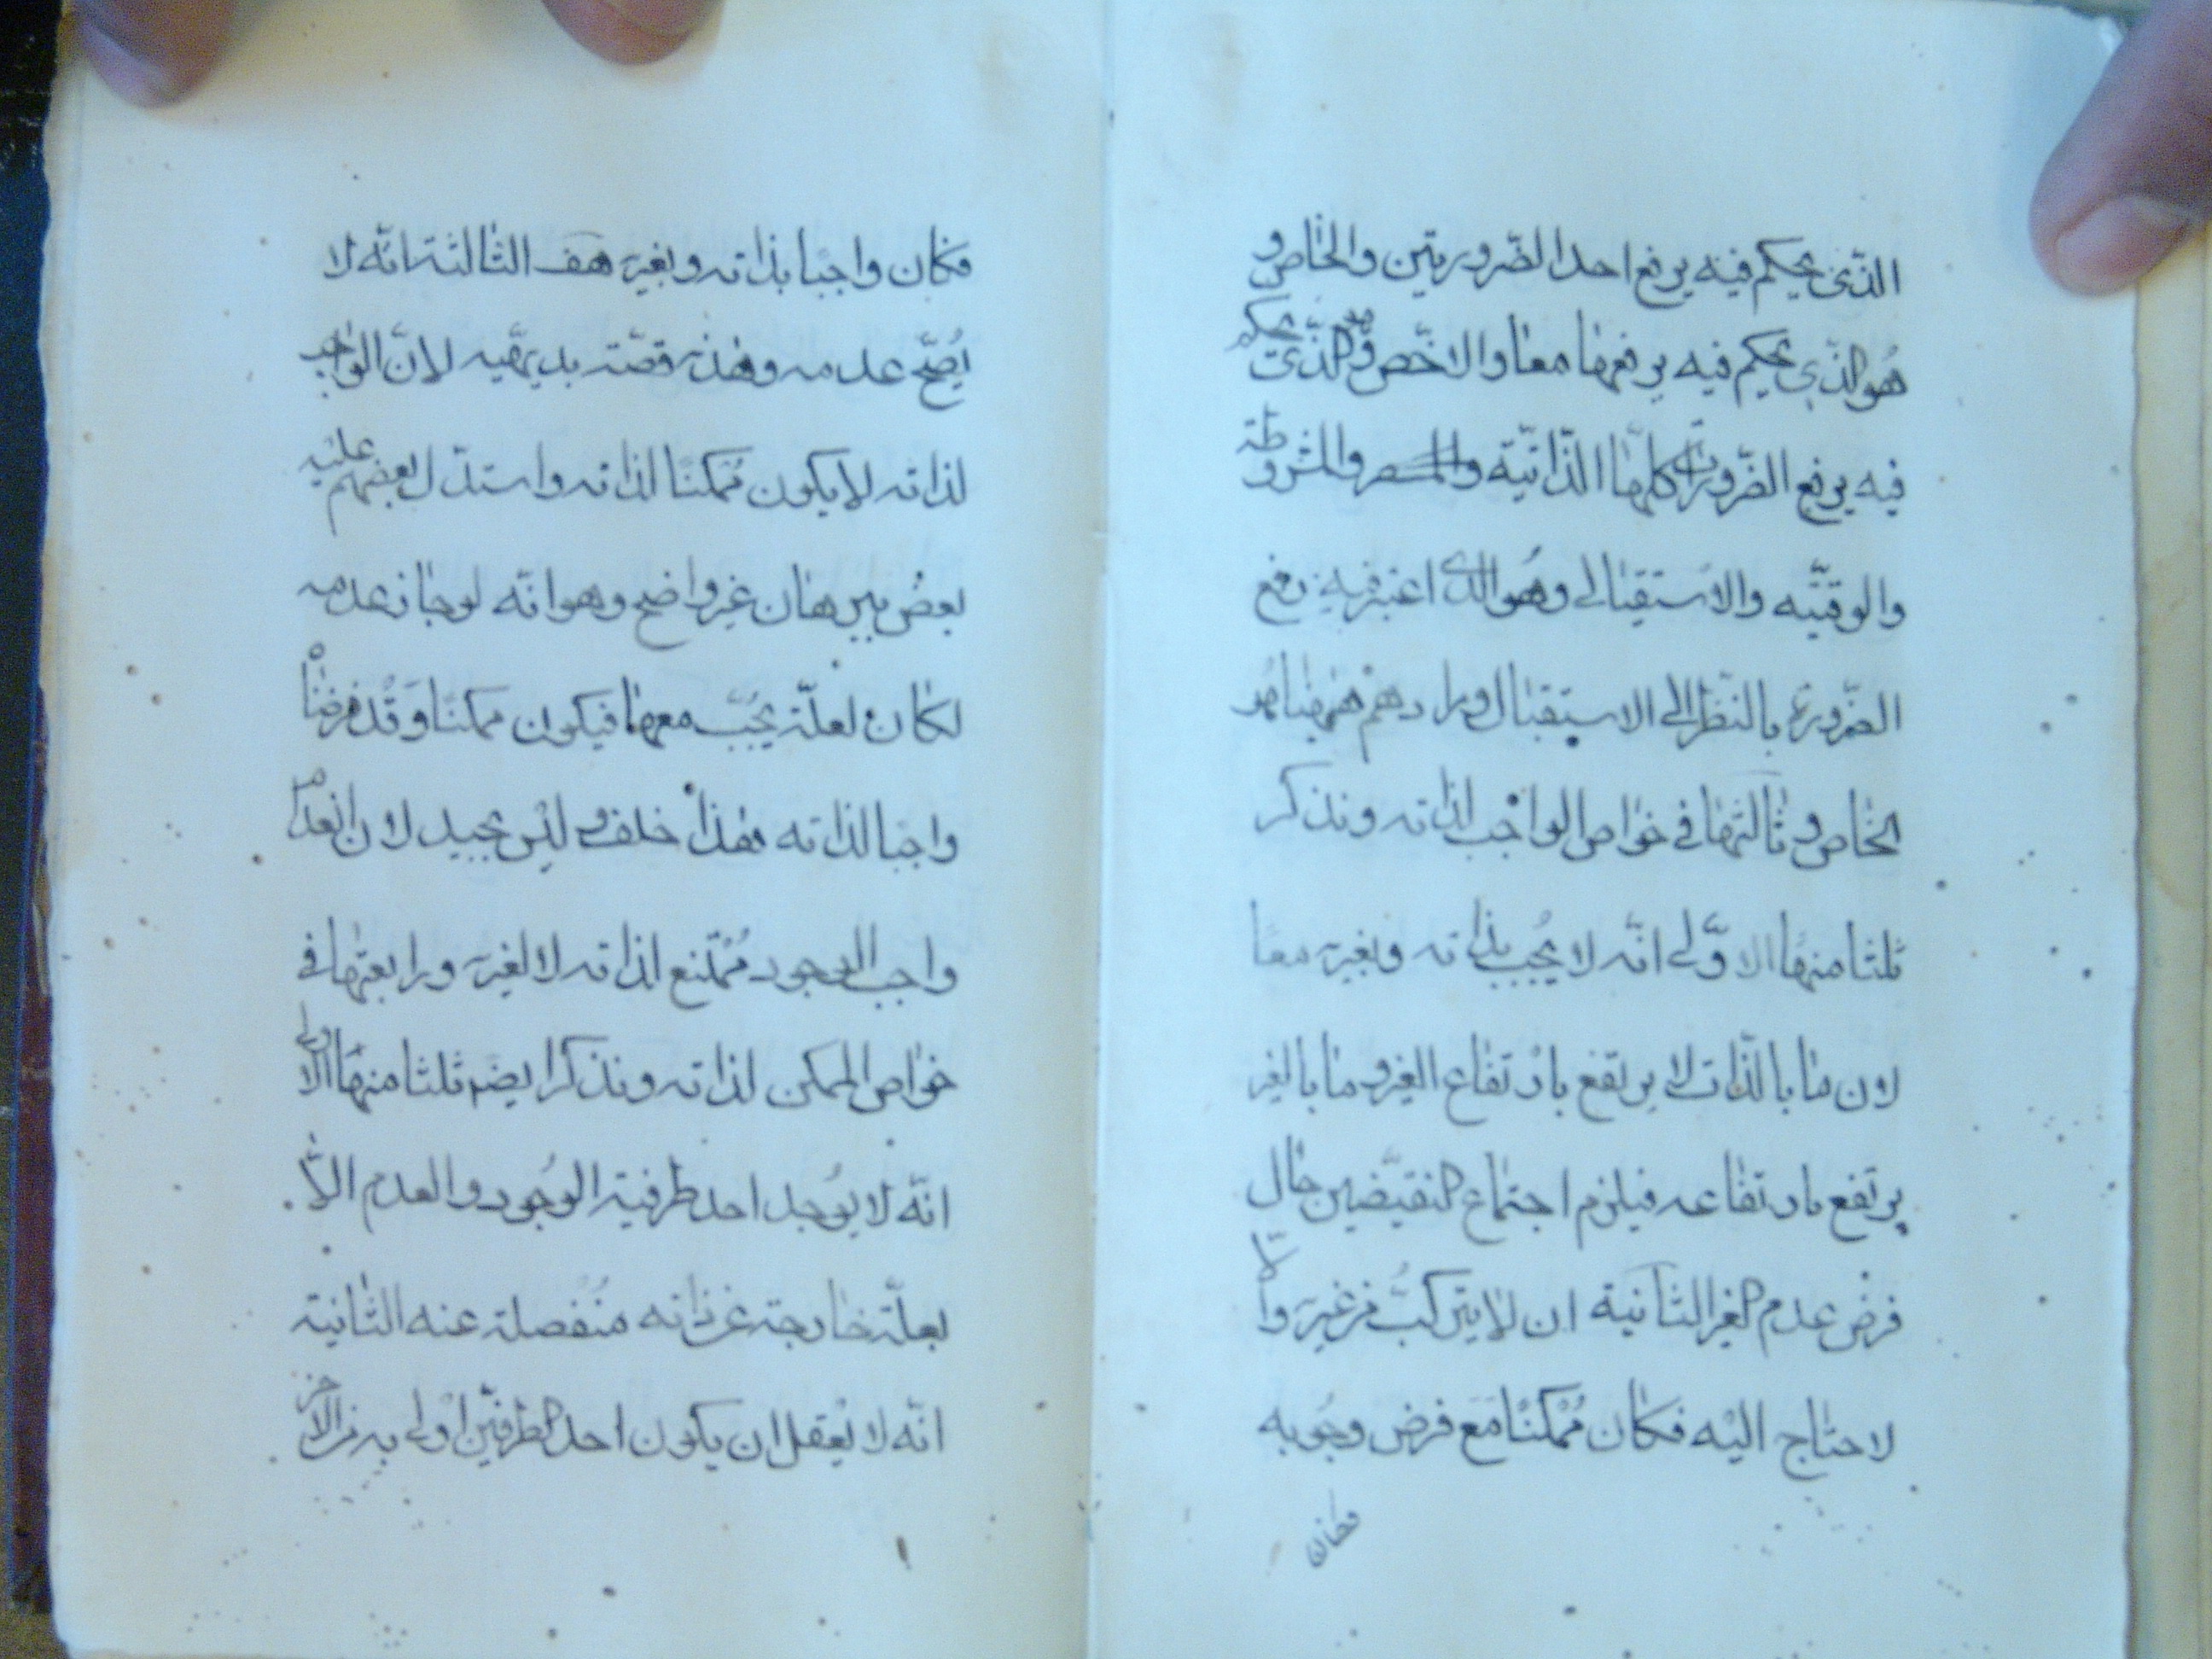 الذّى يحكم فيه يرفع احد الضّروريتين والخاص و
هو الذّى يحكم فيه يرفعهما معا والاخّص وهو الذّى يحكم
فيه يرفع الضّروريّات كلهّا الذّاتيّة والمشروطة
والوقتيّه والاستقبالى وهُو الذى اعتبر فيه رفع
الضّرورة بالنّظر الى الاستقبال ومرادهم ههنا هُو
الخاص و ثالثها فى خواص الواجب لذاته ونذكر
ثلثا منها الاوّلى انّه لا يجُب بذاته وبغيره معًا
لان ما بالذّات لا يرتفع بارتفاع الغير وما بالغير
يرتفع بارتفاعه فيلزم اجتماع النقيّضين حال
فرض عدم الغير الثانية ان لا يتركبُ من غيره والّا
لاحتاج اليْه فكان مُمْكنًا مَع فرض وجُوبه
فكان
فكان واجبًا بذاته وبغيره هف الثالثة انّه لا
يُصحّ عدمه وهذه قضّته بديهّيه لانّ الواجب
لذاته لا يكون مُمكنًا لذاته واستدّل بعضهم عليه
بعضُ ببرهان غير واضح وهو انّه لو جاز عدمه
لكان لعلّة يجُبّ معها فيكون ممكنًا وَقْد فرضناه
واجبا لذاته فهذا خلف و ليْس بجيد لان انعدام
واجب الوجود مُمْتنع لذاته لا لغيره ورابعتها فى
خواص الممكن لذاته ونذكر ايضم ثلثا منها الاولى
انّه لا يوُجد احد طرفية الوجُود والعدم الّا
بعلّة خارجة عن ذاته منُفْصلة عنه الثانية
انّه لا يْعقل ان يكون احد الطرفيْن اوْلى به من الاخر